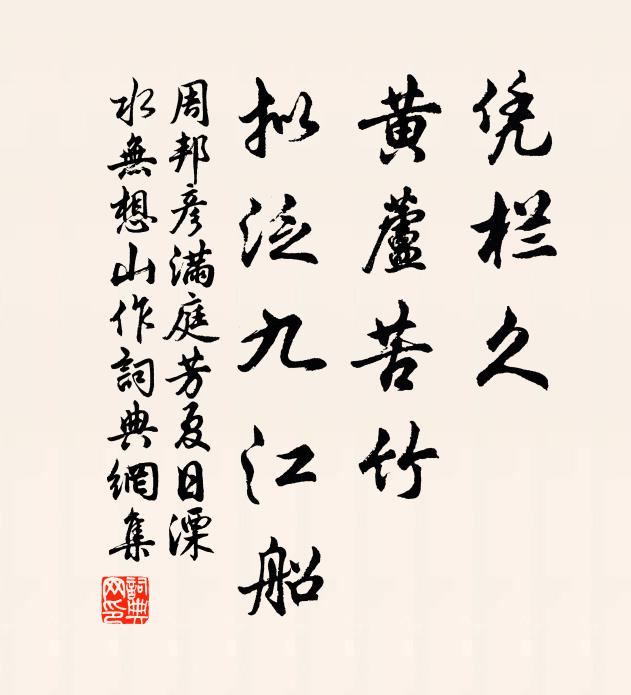 凭栏久
黄蘆苦竹
拟泛九江船
周邦彦滿庭芳夏日溧
水無想山作詞典網集
詞典网印